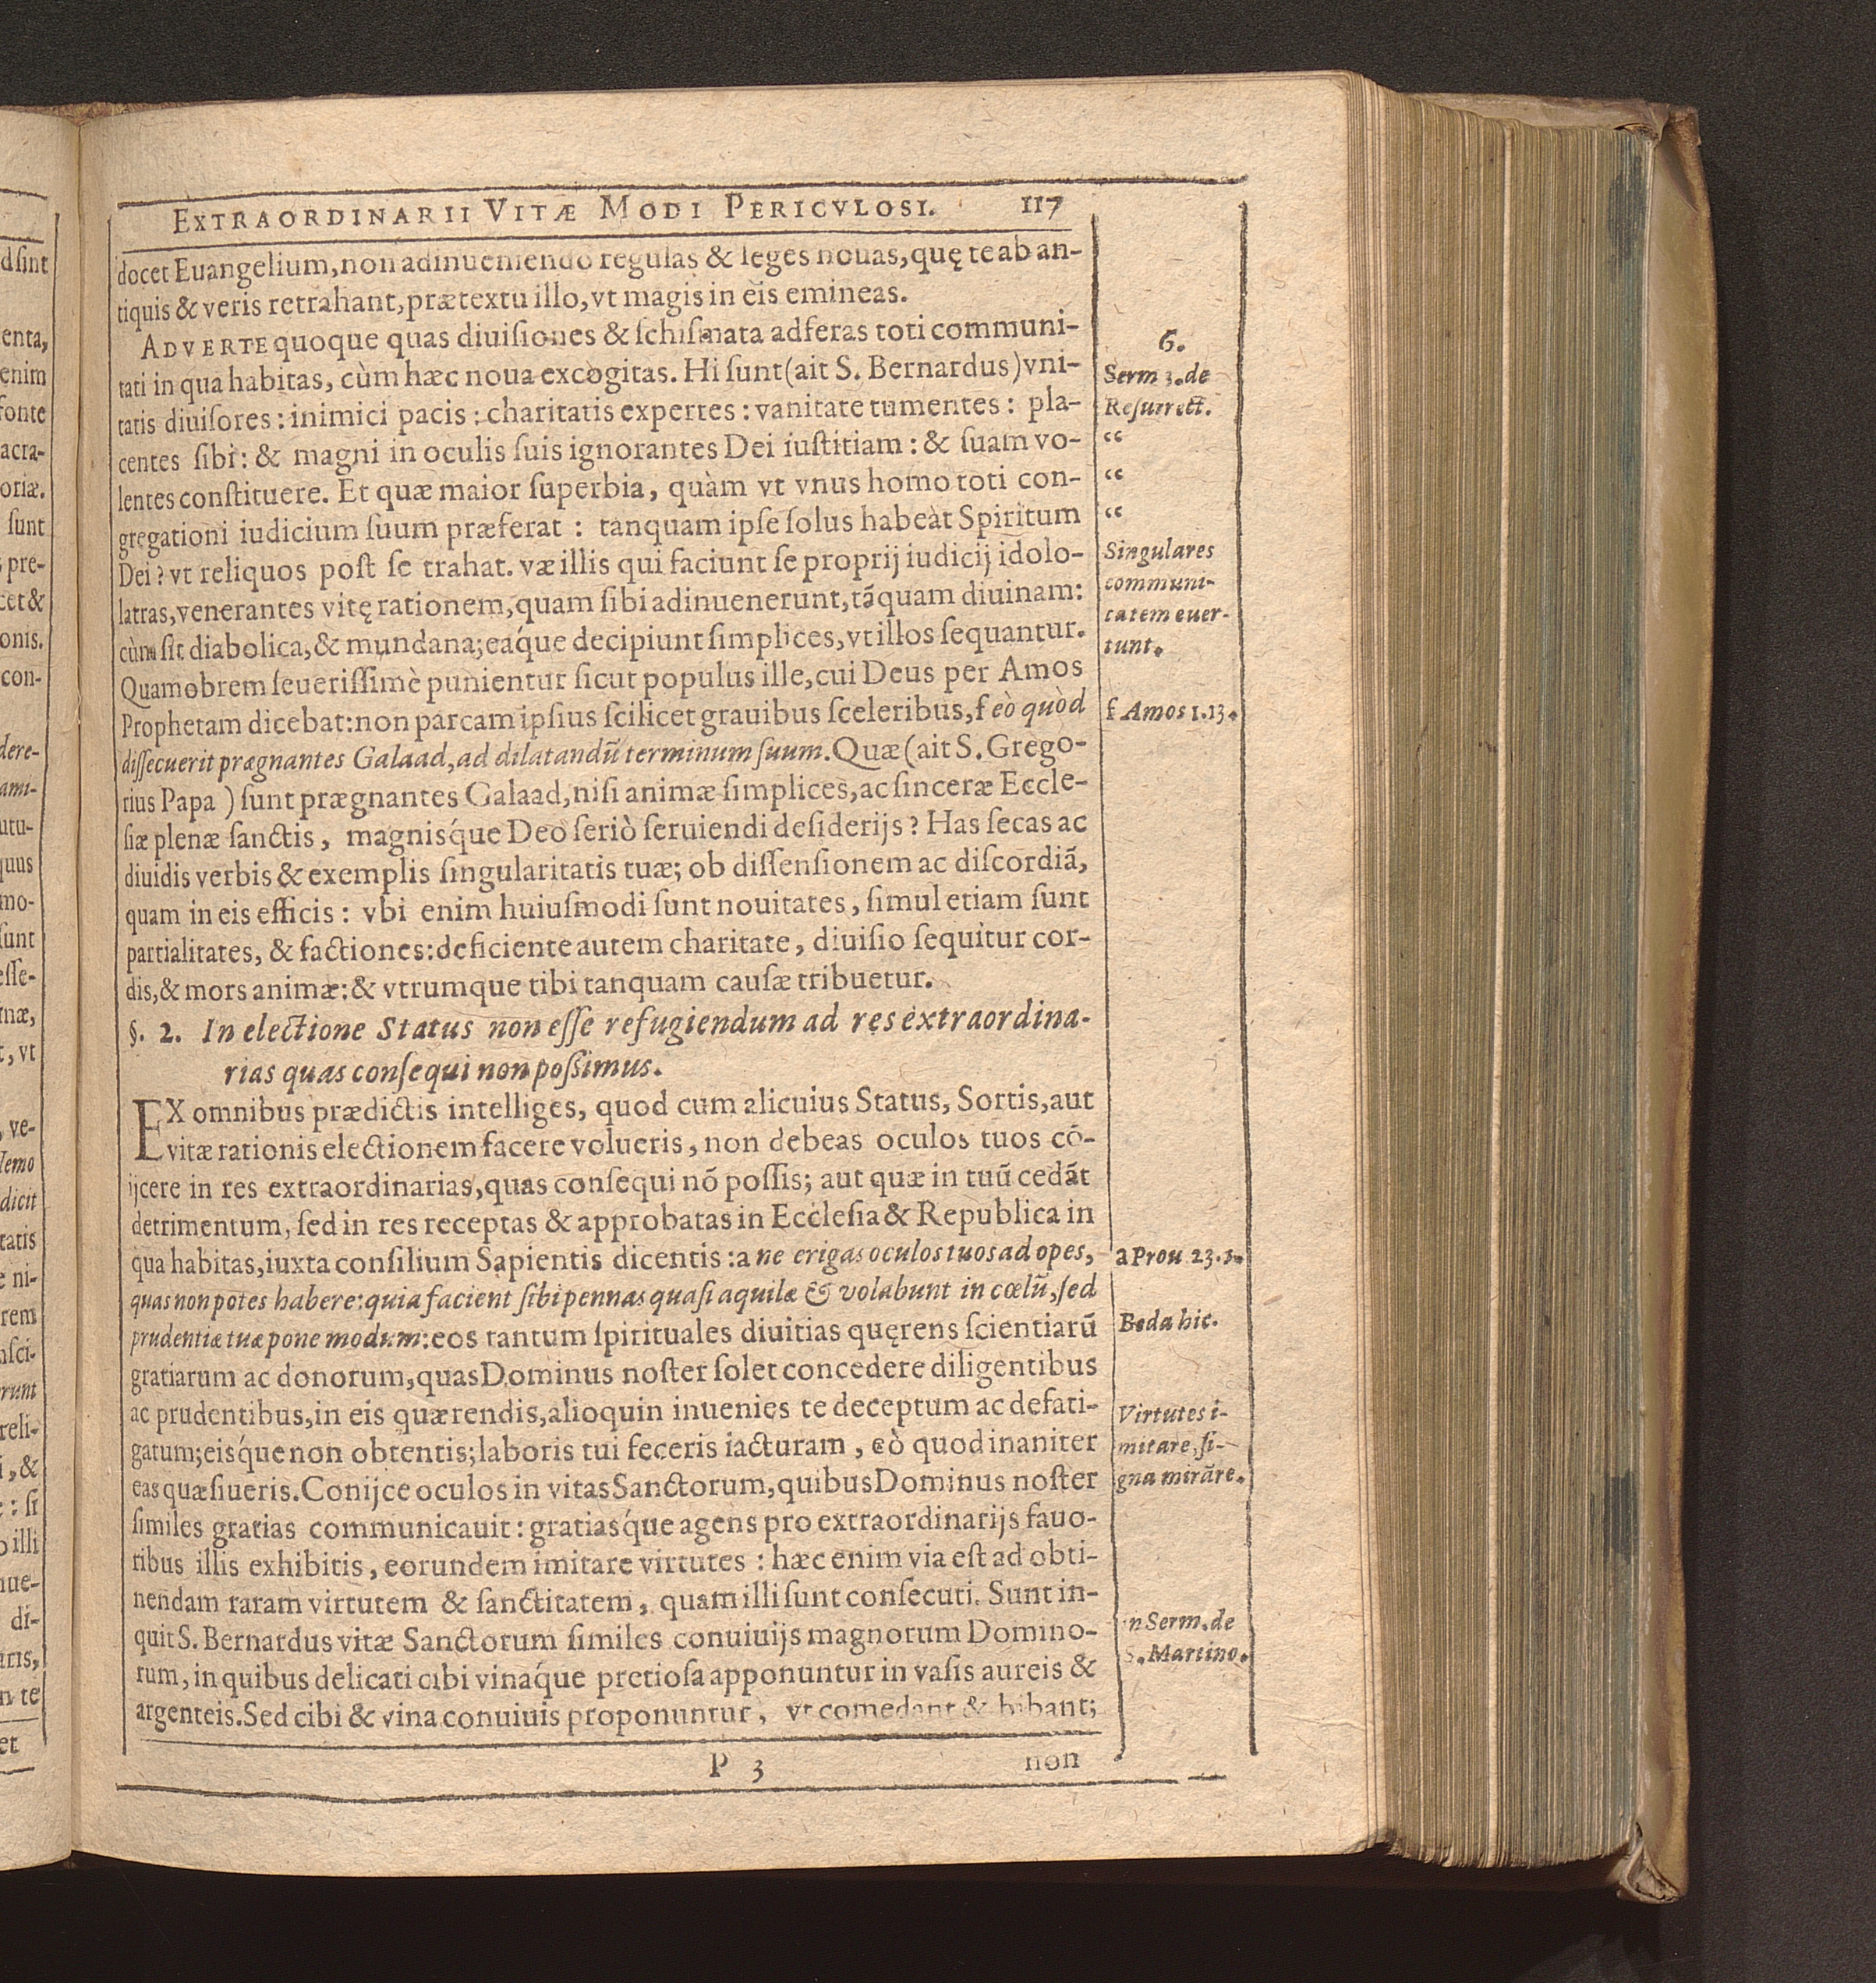 EXTRAORDINARII VITÆ MODI PERICVLOSI. 117
docet Euangelium, non adinueniendo regulas & leges nouas, quę te ab an-
tiquis & veris retrahant, prætextu illo, vt magis in eis emineas.
ADVERTE quoque quas diuiſiones & ſchiſmata adferas toti communi-
tati in qua habitas, cùm hæc noua excogitas. Hi ſunt (ait S. Bernardus) vni-
tatis diuiſores: inimici pacis: charitatis expertes: vanitate tumentes: pla-
centes ſibi: & magni in oculis ſuis ignorantes Dei iuſtitiam: & ſuam vo-
lentes conſtituere. Et quæ maior ſuperbia, quàm vt vnus homo toti con-
gregationi iudicium ſuum præferat: tanquam ipſe ſolus habeat Spiritum
Dei? vt reliquos poſt ſe trahat. væ illis qui faciunt ſe proprij iudicij idolo-
latras, venerantes vitę rationem, quam ſibi adinuenerunt, tãquam diuinam:
cùm ſit diabolica, & mundana; eáque decipiunt ſimplices, vt illos ſequantur.
Quamobrem ſeueriſſimè punientur ſicut populus ille, cui Deus per Amos
Prophetam dicebat: non parcam ipſius ſcilicet grauibus ſceleribus, f eò quòd
diſſecuerit prægnantes Galaad, ad dilatandũ terminum ſuum. Quæ (ait S. Grego-
rius Papa) ſunt prægnantes Galaad, niſi animæ ſimplices, ac ſinceræ Eccle-
ſiæ plenæ ſanctis, magniſque Deo ſeriò ſeruiendi deſiderijs? Has ſecas ac
diuidis verbis & exemplis ſingularitatis tuæ; ob diſſenſionem ac diſcordiã,
quam in eis efficis: vbi enim huiuſmodi ſunt nouitates, ſimul etiam ſunt
partialitates, & factiones: deficiente autem charitate, diuiſio ſequitur cor-
dis, & mors animæ: & vtrumque tibi tanquam cauſæ tribuetur.
§. 2. In electione Status non eſſe refugiendum ad res extraordina-
rias quas conſequi non poſſimus.
EX omnibus prædictis intelliges, quod cum alicuius Status, Sortis, aut
vitæ rationis electionem facere volueris, non debeas oculos tuos cõ-
ijcere in res extraordinarias, quas conſequi nõ poſſis; aut quæ in tuũ cedãt
detrimentum, ſed in res receptas & approbatas in Eccleſia & Republica in
qua habitas, iuxta conſilium Sapientis dicentis: a ne erigas oculos tuos ad opes,
quas non potes habere: quia facient ſibi pennas quaſi aquilæ & volabunt in cœlũ, ſed
prudentiæ tuæ pone modum: eos tantum ſpirituales diuitias quęrens ſcientiarũ
gratiarum ac donorum, quas Dominus noſter ſolet concedere diligentibus
ac prudentibus, in eis quærendis, alioquin inuenies te deceptum ac defati-
gatum; eiſque non obtentis; laboris tui feceris iacturam, eò quod inaniter
eas quæſiueris. Conijce oculos in vitas Sanctorum, quibus Dominus noſter
ſimiles gratias communicauit: gratiaſque agens pro extraordinarijs fauo-
ribus illis exhibitis, eorundem imitare virtutes: hæc enim via eſt ad obti-
nendam raram virtutem & ſanctitatem, quam illi ſunt conſecuti. Sunt in-
quit S. Bernardus vitæ Sanctorum ſimiles conuiuijs magnorum Domino-
rum, in quibus delicati cibi vináque pretioſa apponuntur in vaſis aureis &
argenteis. Sed cibi & vina conuiuis proponuntur, vt comedant & bibant;
P 3 non
6.
Serm 3. de
Reſurrect.
“
“
“
Singulares
communi-
tatem euer-
tunt.
f Amos 1.13.
a Prou 23.3.
Beda hic.
Virtutes i-
mitare, ſi-
gna mirãre.
in Serm. de
S. Martino.
dſint
enta,
enim
fonte
acra-
oriæ.
ſunt
pre-
cet &
onis.
con-
dere-
ami-
utu-
quus
mo-
ſunt
eſſe-
næ,
t, vt
, ve-
Nemo
dicit
tatis
e ni-
rem
nſci-
runt
reli-
i, &
e: ſi
o illi
nue-
di-
aris,
n te
et